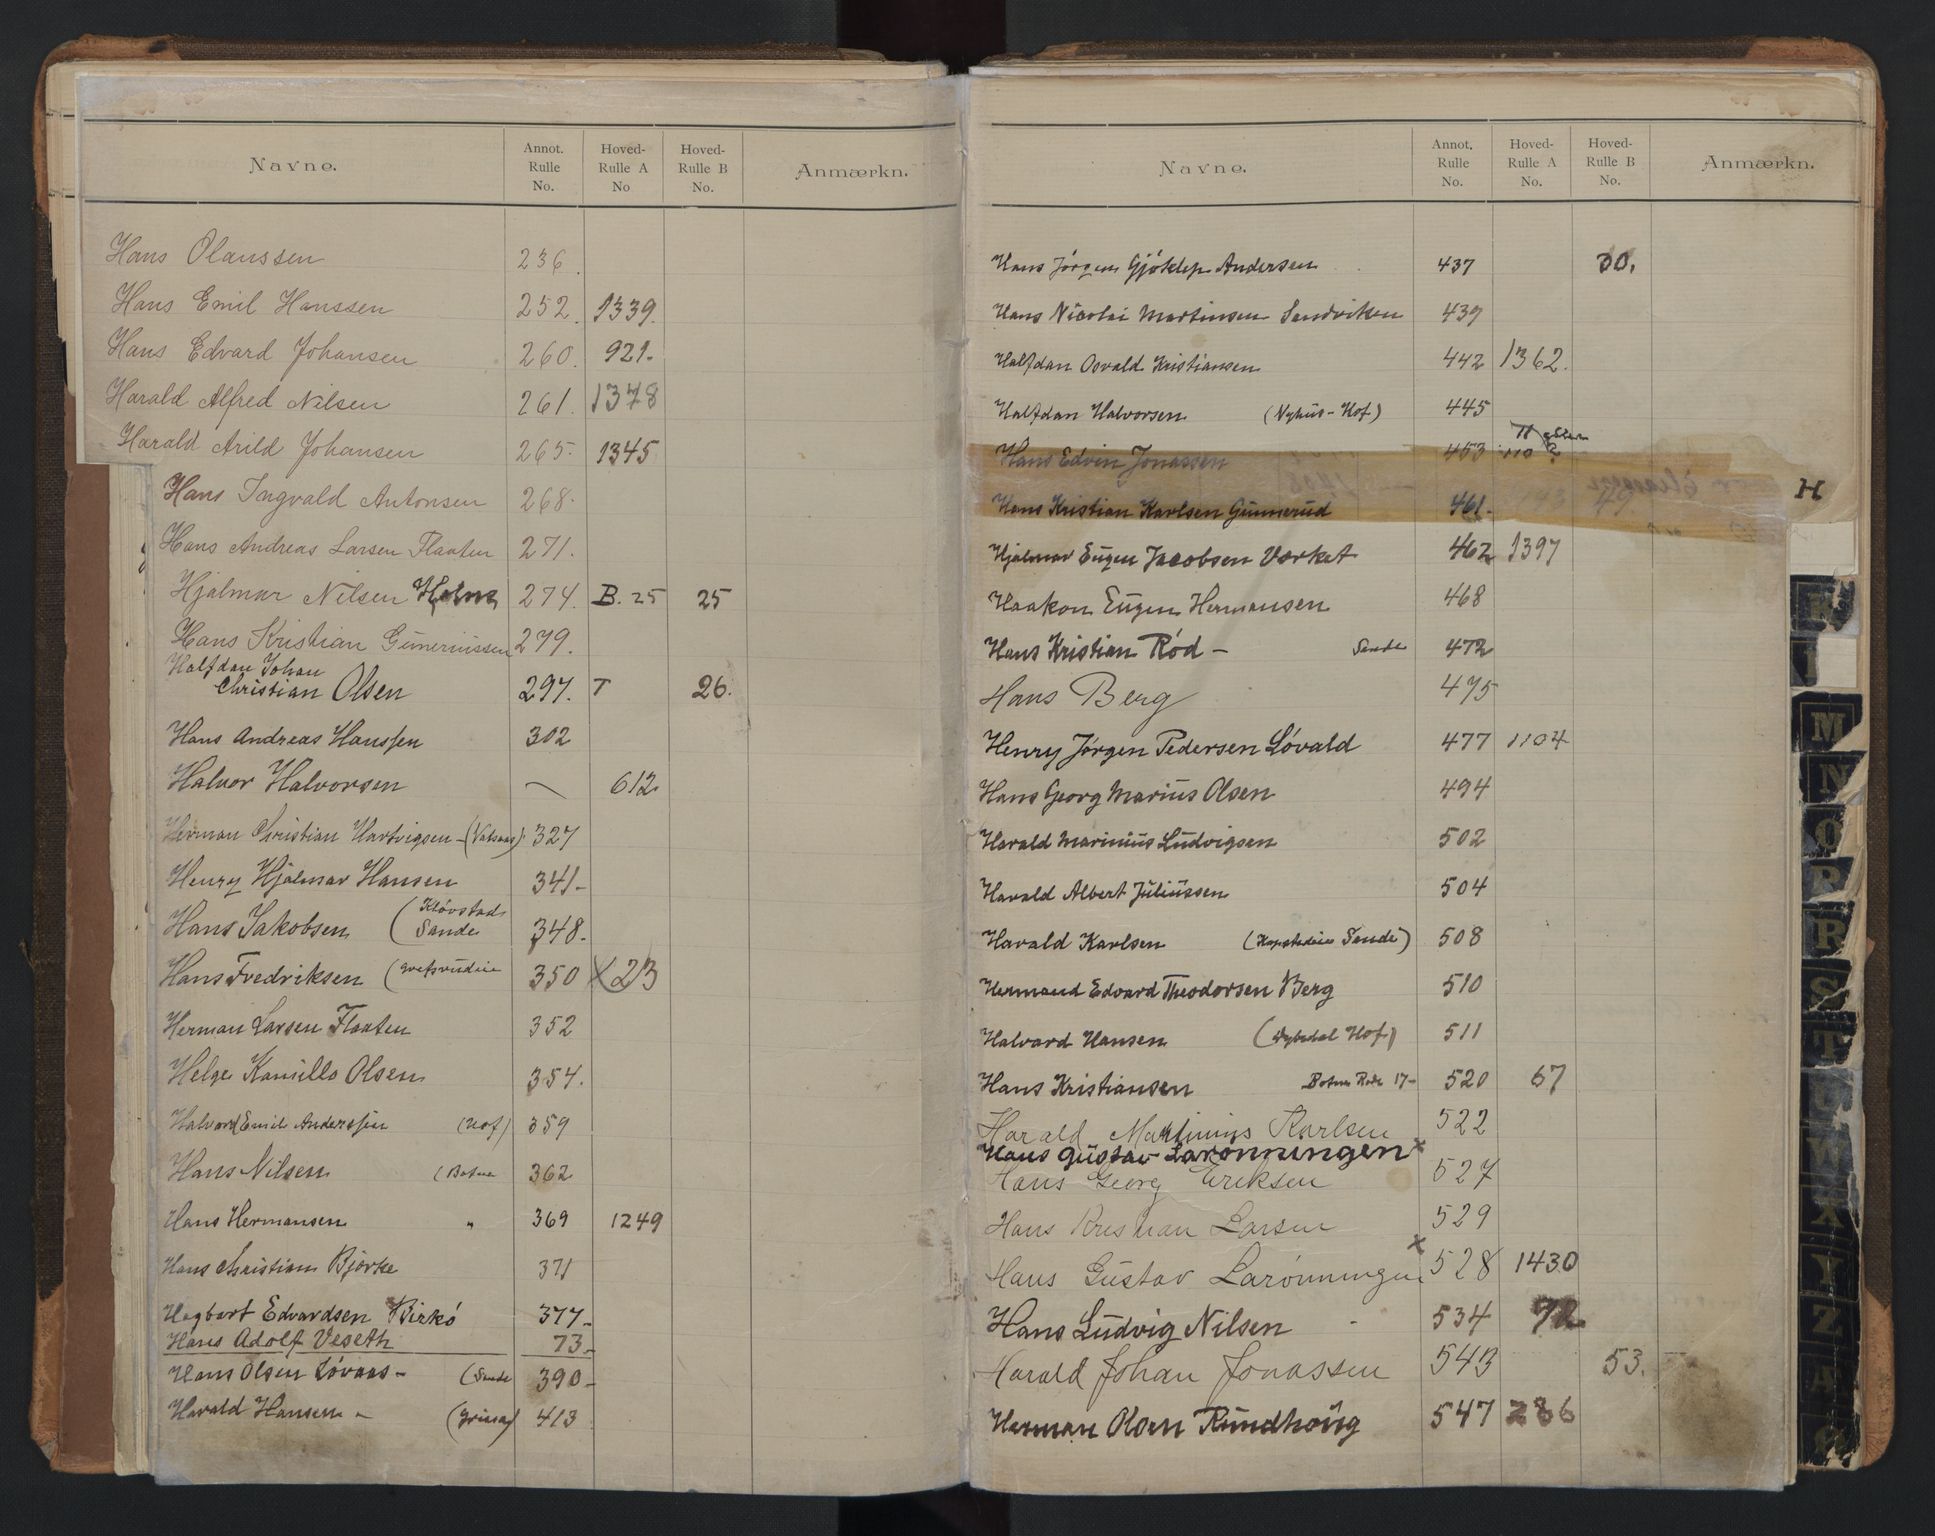 Navne. Annot. Rulle No. Hoved-Rulle A No Hoved-Rulle B No. Anmærkn.
Hans Olaussen 236.
Hans Emil Hanssen 252. 1339.
Hans Edvard Johansen 260. 921.
Harald Alfred Nilsen 261. 1378
Harald Arild Johansen 265. 1345
Hans Ingvald Antonsen 268.
Hans Andreas Larsen Flaaten 271.
Hjalmar Nilsen 274. B. 25 25
Hans Kristian Guneriussen 279.
Halfdan Johan
Christian Olsen 297. T 26.
Hans Andreas Hanssen 302
Halvor Halvorsen — 612
Herman Christian Hartvigsen - 327
Henry Hjalmar Hansen 341-
Hans Jakobsen (Klövstad Sande 348.
Hans Fredriksen 350 X 23
Herman Larsen Flaaten 352
Helge Kamillo Olsen 354.
Halvard Emil Anderssen (Hof) 359
Hans Nilsen (Botne 362
Hans Hermansen " 369 1249
Hans Christian Björke 371
Hagbart Edvardsen Birkö 377-
Hans Adolf Veseth 73-
Hans Olsen Lövaas - (Sande 390-
Harald Hansen - 413
Navne. Annot. Rulle No. Hoved-Rulle A No. Hoved-Rulle B No. Anmærkn.
Hans Jörgen Andersen 437 30.
Hans Nicolai Martinsen Sandviken 439
Halfdan Osvald Kristiansen 442 1362.
Halfdan Halvorsen (Nyhus - Hof) 445
Hans Edvin Jonassen 453
Hans Kristian Karlsen Gunnerud 461.
H
Hjalmar Eugen Jacobsen Værket 462 1397
Haakon Eugen Hermansen 468
Hans Kristian Röd - Sande 472
Hans Berg 475
Henry Jörgen Pedersen Lövald 477 1104
Hans Georg Marius Olsen 494
Harald Marinius Ludvigsen 502
Harald Albert Juliussen 504
Harald Karlsen Sande) 508
Hermand Edvard Theodorsen Berg 510
Halvard Hansen Hof) 511
Hans Kristiansen Botne 17- 520 67
Harald Martinius Karlsen 522
Hans Gustav Larönningen x
Hans Georg Eriksen 527
Hans Kristian Larsen 529
Hans Gustav Larönningen x 528 1430
Hans Ludvig Nilsen - 534 72
Harald Johan Jonassen 543 53.
Herman Olsen Rundhaug 547 286
K
M
N
O
P
R
S
T
U
W
X
Y
Z